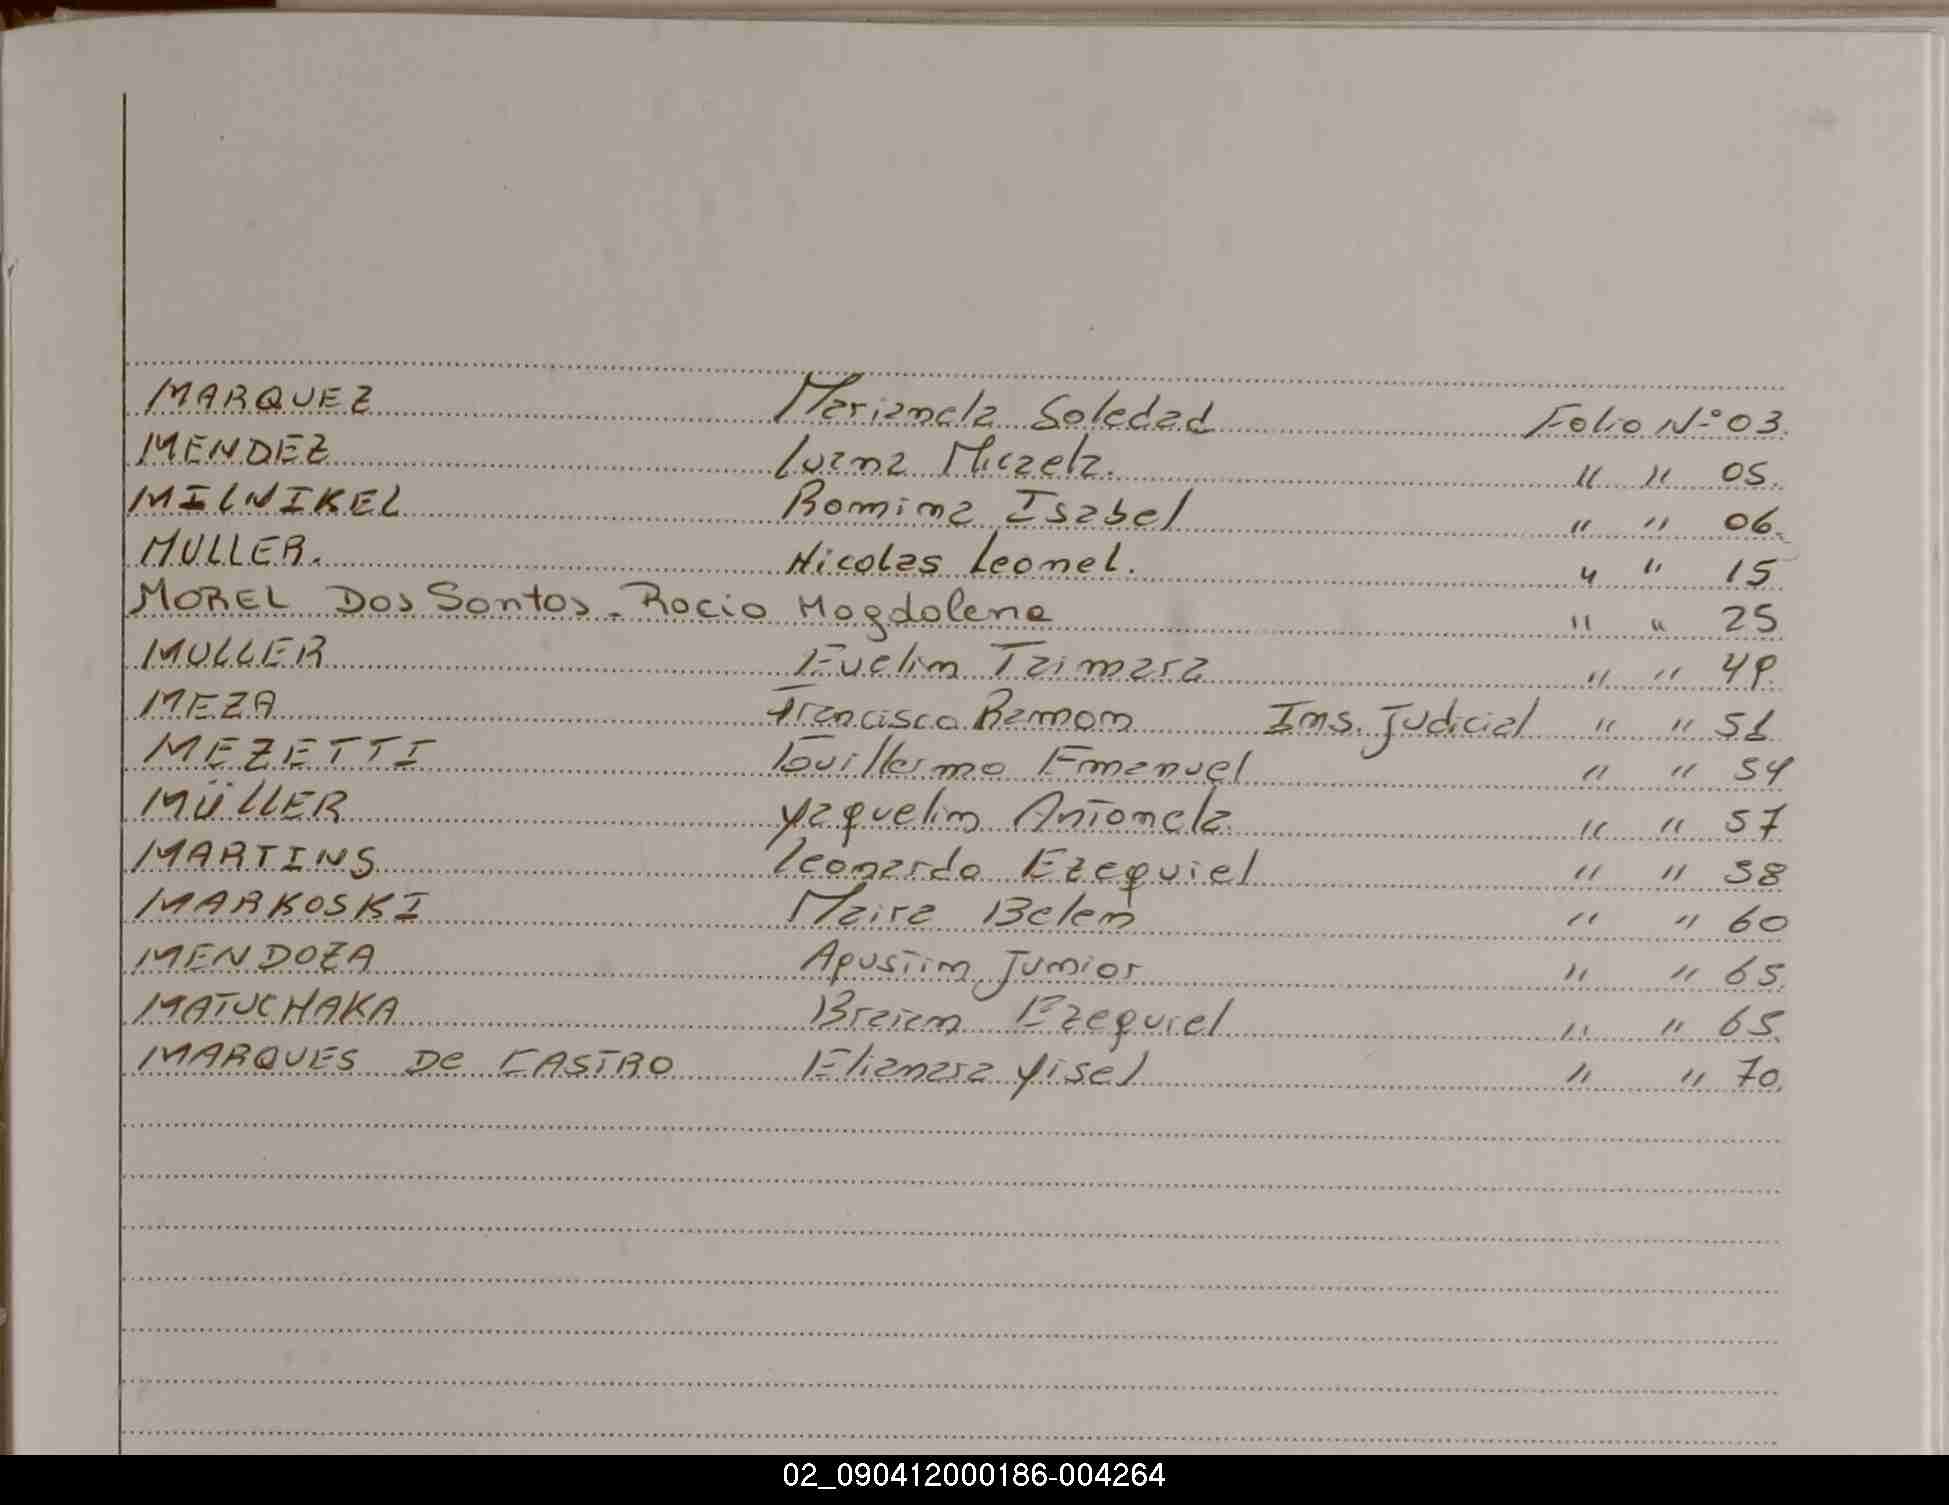 MARQUEZ Marianela Soledad Folio N° 03.
MENDEZ Luana Micaela. " " 05.
MILNIKEL Romina Isabel " " 06.
MULLER. Nicolas Leonel. " " 15
MOREL Dos Santos. Rocio Magdalena " " 25
MULLER Evelin Taimara " " 49.
MEZA Francisco Ramon Ins. Judicial " " 51
MEZETTI Guillermo Emanuel " " 54
MÜLLER Yaquelin Antonela " " 57
MARTINS Leonardo Ezequiel " " 58
MARKOSKI Maira Belen " " 60
MENDOZA Agustin Junior " " 65.
MATUCHAKA Braian Ezequiel " " 65.
MARQUES De CASTRO Elianara Yisel " " 70.
02_090412000186-004264